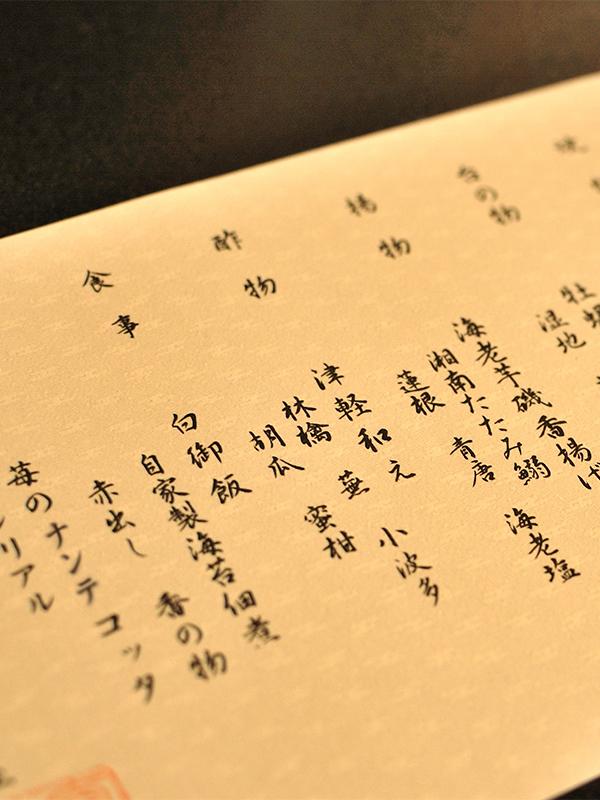 台の物
湿地
揚物
海老芋磯香揚げ
湘南たたみ鰯
蓮根 青唐 海老塩
酢物
津軽和え
林檎 蕪 小波多
胡瓜 蜜柑
食事
白御飯
自家製海苔佃煮
赤出し 香の物
苺のナンテコッタ
リアル